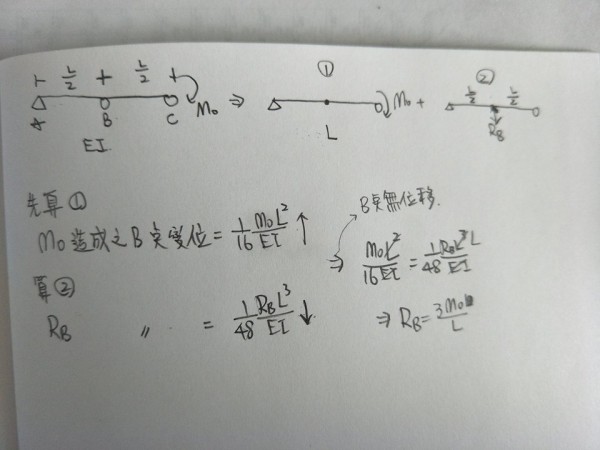 L/2 L/2
A B C M₀ ⇒ ① L M₀ + ② L/2 L/2 R_B
EI
先算①
M₀造成之B点变位 = 1/16 M₀L²/EI ↑
B点無位移.
⇒ M₀L²/16EI = 1/48 R_BL³/EI
算②
R_B 〃 = 1/48 R_BL³/EI ↓
⇒ R_B = 3M₀/L